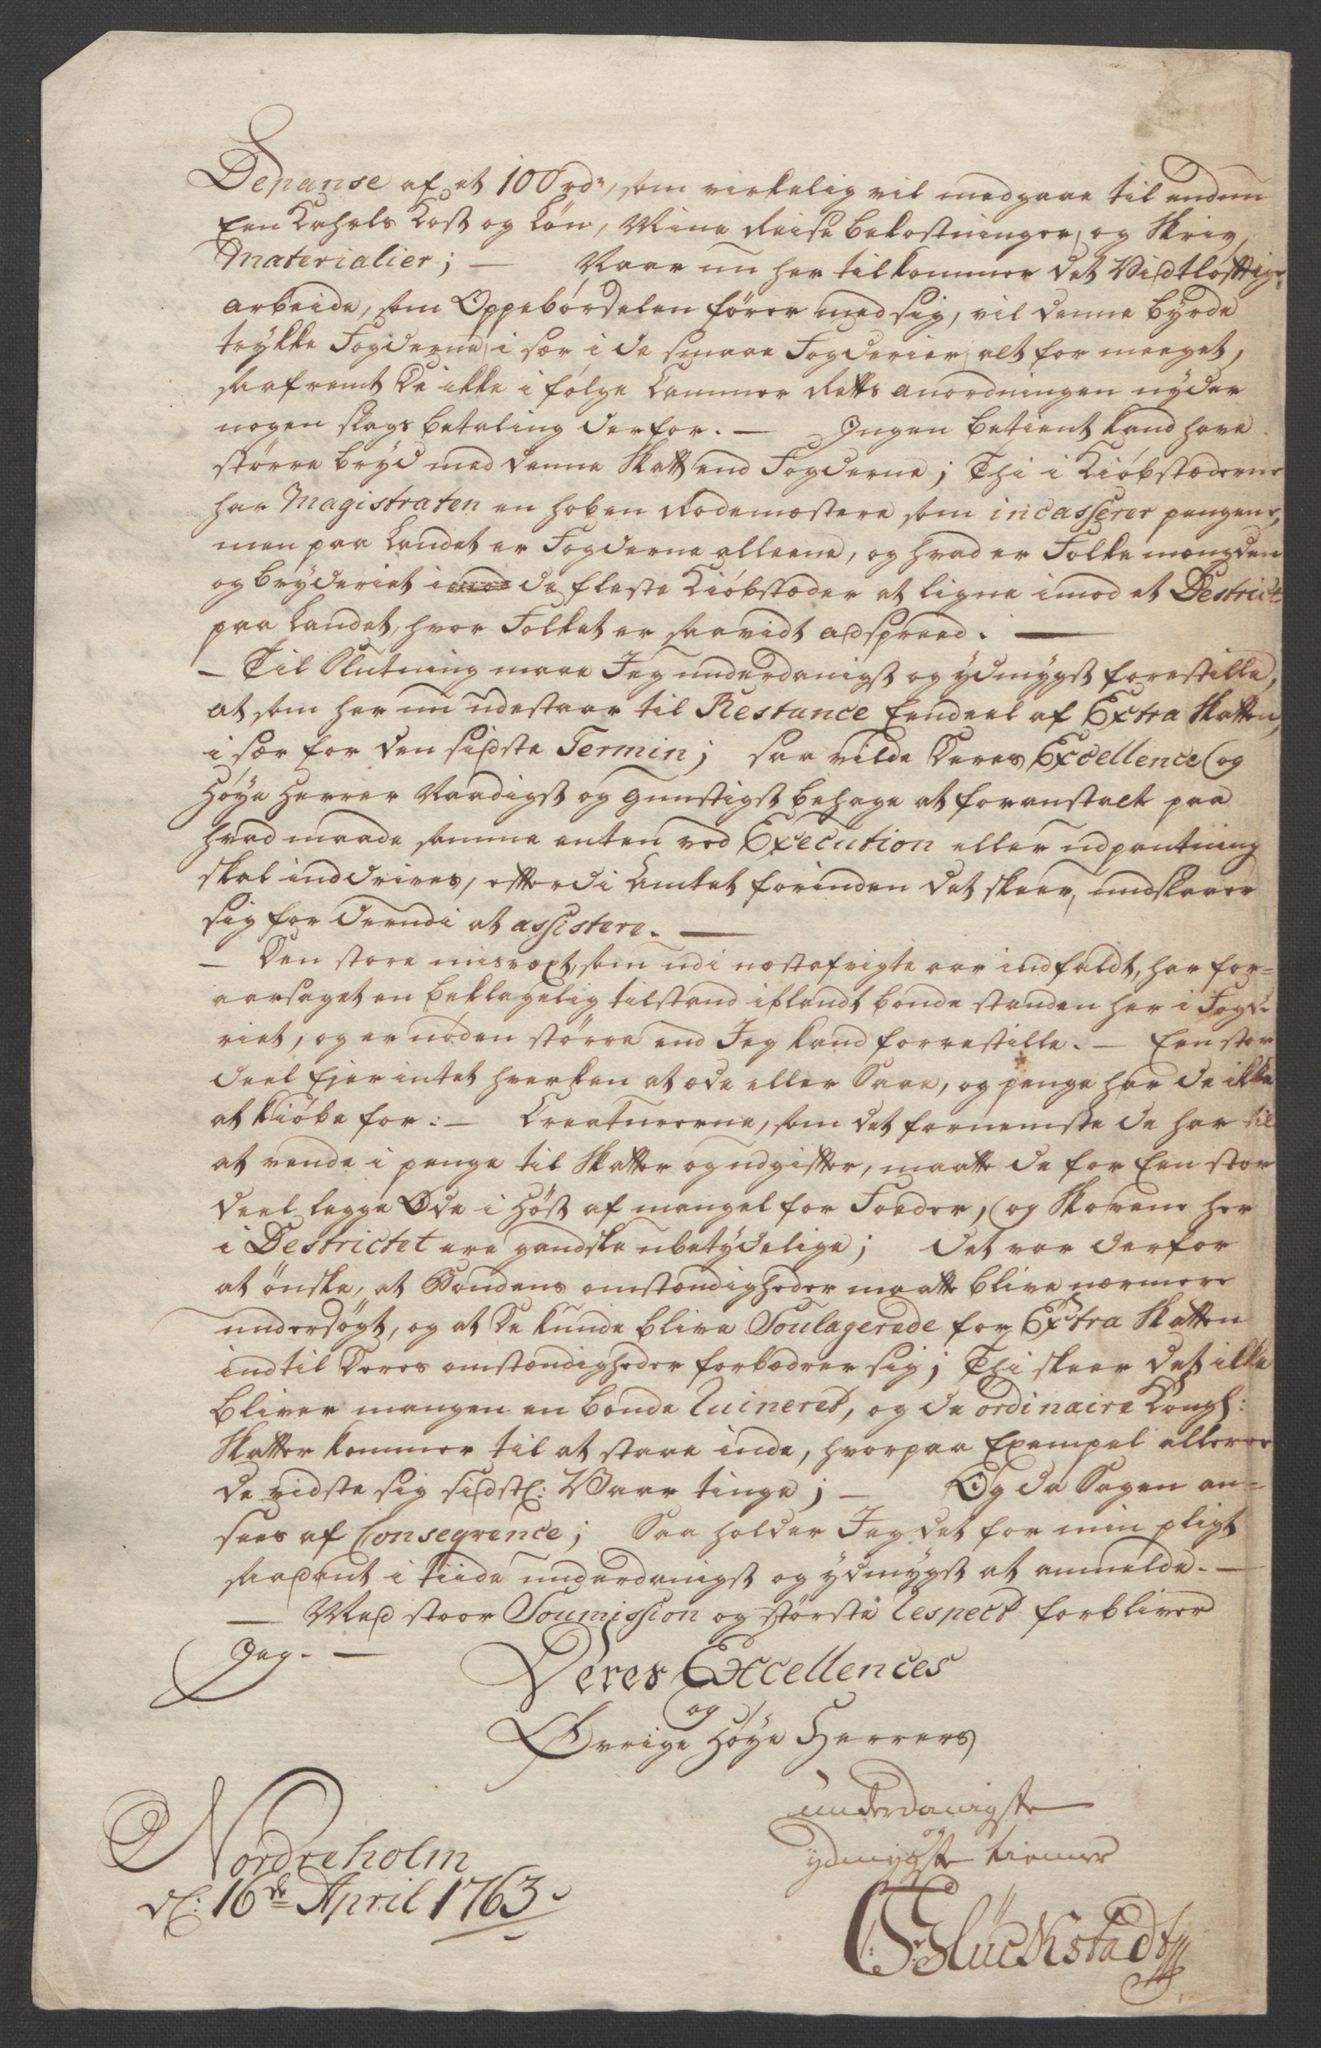 Depanse af et 100 rdr, som virkelig vil medgaae til enden
Een Karls Kost og Løn, Mine Reise bekostninger, og Skriv,
Materialier; — Naar nu her tilkommer det Vidtløftige
arbeide, som Oppebørselen fører med sig, vil denne byrde
trykke Fogderne, i sær i de smaae Fogderier, alt for meeget,
saafremt De ikke i følge Cammer Retts anordningen nyder
nogen slags betaling derfor. — Ingen betient kand have
større bryd med denne Skatt end Fogderne; Thi i Kiøbstæderne
har Magistraten en hoben Rodemestere som incasserer pengene,
men paa Landet er Fogderne alleene, og hvad er Folke mængden
og bryderiet i de fleste Kiøbstæder at ligne imod et Destrict
paa Landet, hvor Folket er saavidt adspreed. —
— Til Slutning maae Jeg underdanigst og ydmygst forestille,
at som her nu udestaar til Restance Eendeel af Extra Skatten,
i sær for den sidste Termin; saa vilde Deres Excellence og
Høye Herrer Naadigst og gunstigst behage at foranstalte paa
hvad maade samme enten ved Execution eller udpantning
skal inddrives, efterdi Amtet forinden det skeer, undslaaer
sig for derudi at assistere. —
— Den store misvext, som udi næstafvigte aar indfaldt, har for=
aarsaget en beklagelig tilstand iblandt bonde standen her i Fogde
riet, og er nøden større end Jeg kand forrestille. — Een stor
deel Ejer intet hverken at æde eller Saae, og penge har de ikke
at kiøbe for: — Creaturerne, som det fornemste de har til
at vende i penge til Skatter og udgifter, maatte de for Een stor
deel legge Øde i Høst af mangel for Foeder, og Skovene her
i Destrictet ere gandske ubetydelige; det var derfor
at ønske, at Bondens omstændigheder maatte blive nærmere
undersøgt, og at De kunde blive Soulagerede for Extra Skatten
indtil Deres omstændigheder forbædrer sig; Thi skeer det ikke
bliver mangen en bonde Ruinered, og de ordinaire Kongl:
Skatter kommer til at staae inde, hvorpaa Exempel alleree
de vidste sig sidstl: Vaar tinge; — Og da Sagen an=
sees af Conseqvence; Saa holder Jeg det for min pligt
saadant i tiide underdanigst og ydmygst at anmelde. —
— Med stoor Soumission og største Respect forbliver
Jeg. —
Deres Excellences
og
Øvrige Høye Herrers
underdanigste
og
ydmygste tienner
Nordreholm
d: 16de April 1763.
Glückstadt